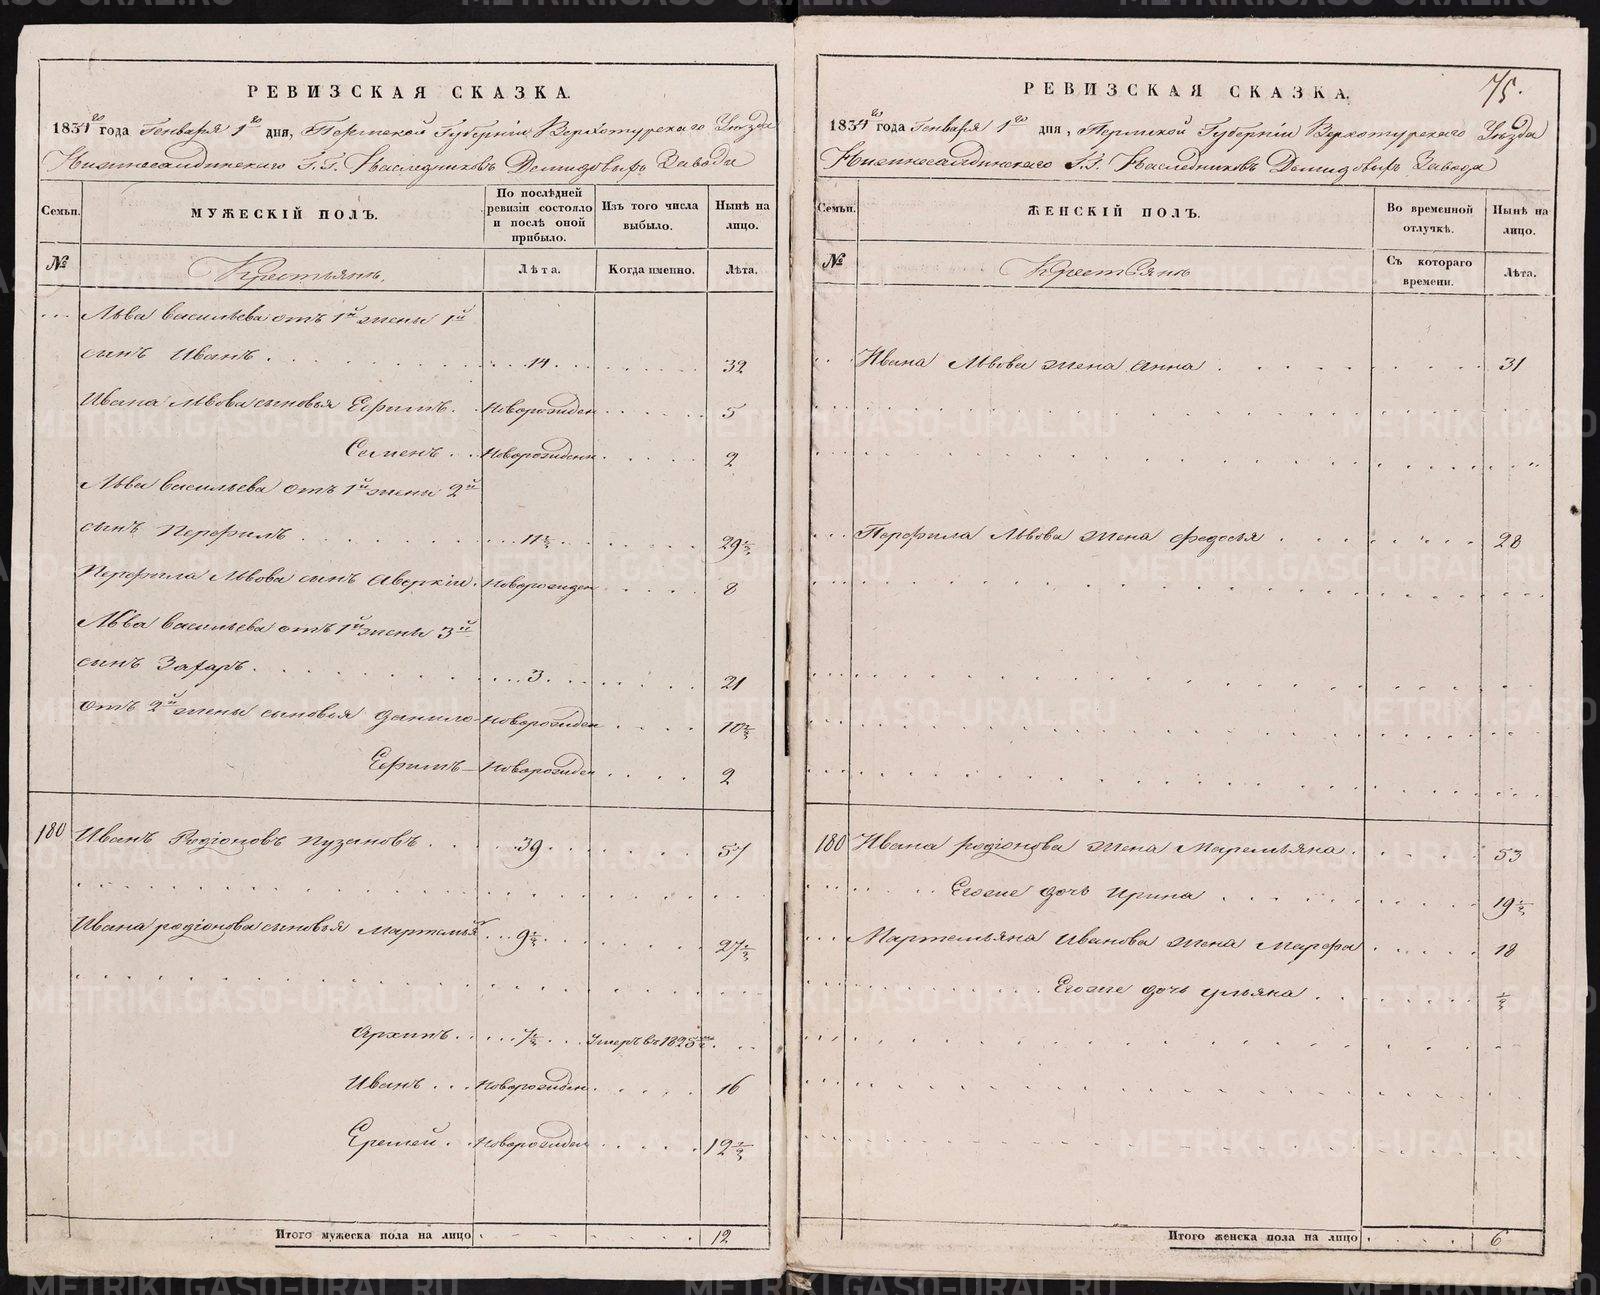 РЕВИЗСКАЯ СКАЗКА.
1834го года Генваря 1го дня, Пермской Губерніи Верхотурскаго Уѣзда
Нижнесалдинскаго Г.Г. Наслѣдниковъ Демидовыхъ Завода
Семьи.
МУЖЕСКІЙ ПОЛЪ.
По послѣдней ревизіи состояло и послѣ оной прибыло.
Изъ того числа выбыло.
Нынѣ на лицо.
№
Крестьянъ.
Лѣта.
Когда именно.
Лѣта.
Льва Васильева отъ 1й жены 1й
сынъ Иванъ 14 32
Ивана Львова сыновья Ефимъ Новорожден 5
Семенъ Новорожденн 2
Льва Васильева отъ 1й жены 2й
сынъ Перфилъ 11½ 29½
Перфила Львова сынъ Аверкіи Новорожден 8
Льва Васильева отъ 1й жены 3й
сынъ Захаръ 3 21
отъ 2й жены сыновья Данило Новорожден 10½
Ефимъ Новорожден 2
180 Иванъ Родіоновъ Пузановъ 39 57
Ивана родіонова сыновья Мартемья 9½ 27½
Архипъ 7½ Умеръ въ 1825м
Иванъ Новорожден 16
Еремей Новорожден 12½
Итого мужеска пола на лицо 12
75.
РЕВИЗСКАЯ СКАЗКА.
1834го года Генваря 1го дня, Пермской Губерніи Верхотурскаго Уѣзда
Нижнесалдинскаго Г.Г. Наслѣдниковъ Демидовыхъ Завода
Семьи.
ЖЕНСКІЙ ПОЛЪ.
Во временной отлучкѣ.
Нынѣ на лицо.
№
Крестьянъ
Съ котораго времени.
Лѣта.
Ивана Львова жена Анна 31
Перфила Львова жена Федосья 28
180 Ивана родіонова жена Маремьяна 53
Егоже дочь Ирина 19½
Мартемьяна Иванова жена Марфа 18
Егоже дочь Ульяна ½
Итого женска пола на лицо 6
METRIKI.GASO-URAL.RU